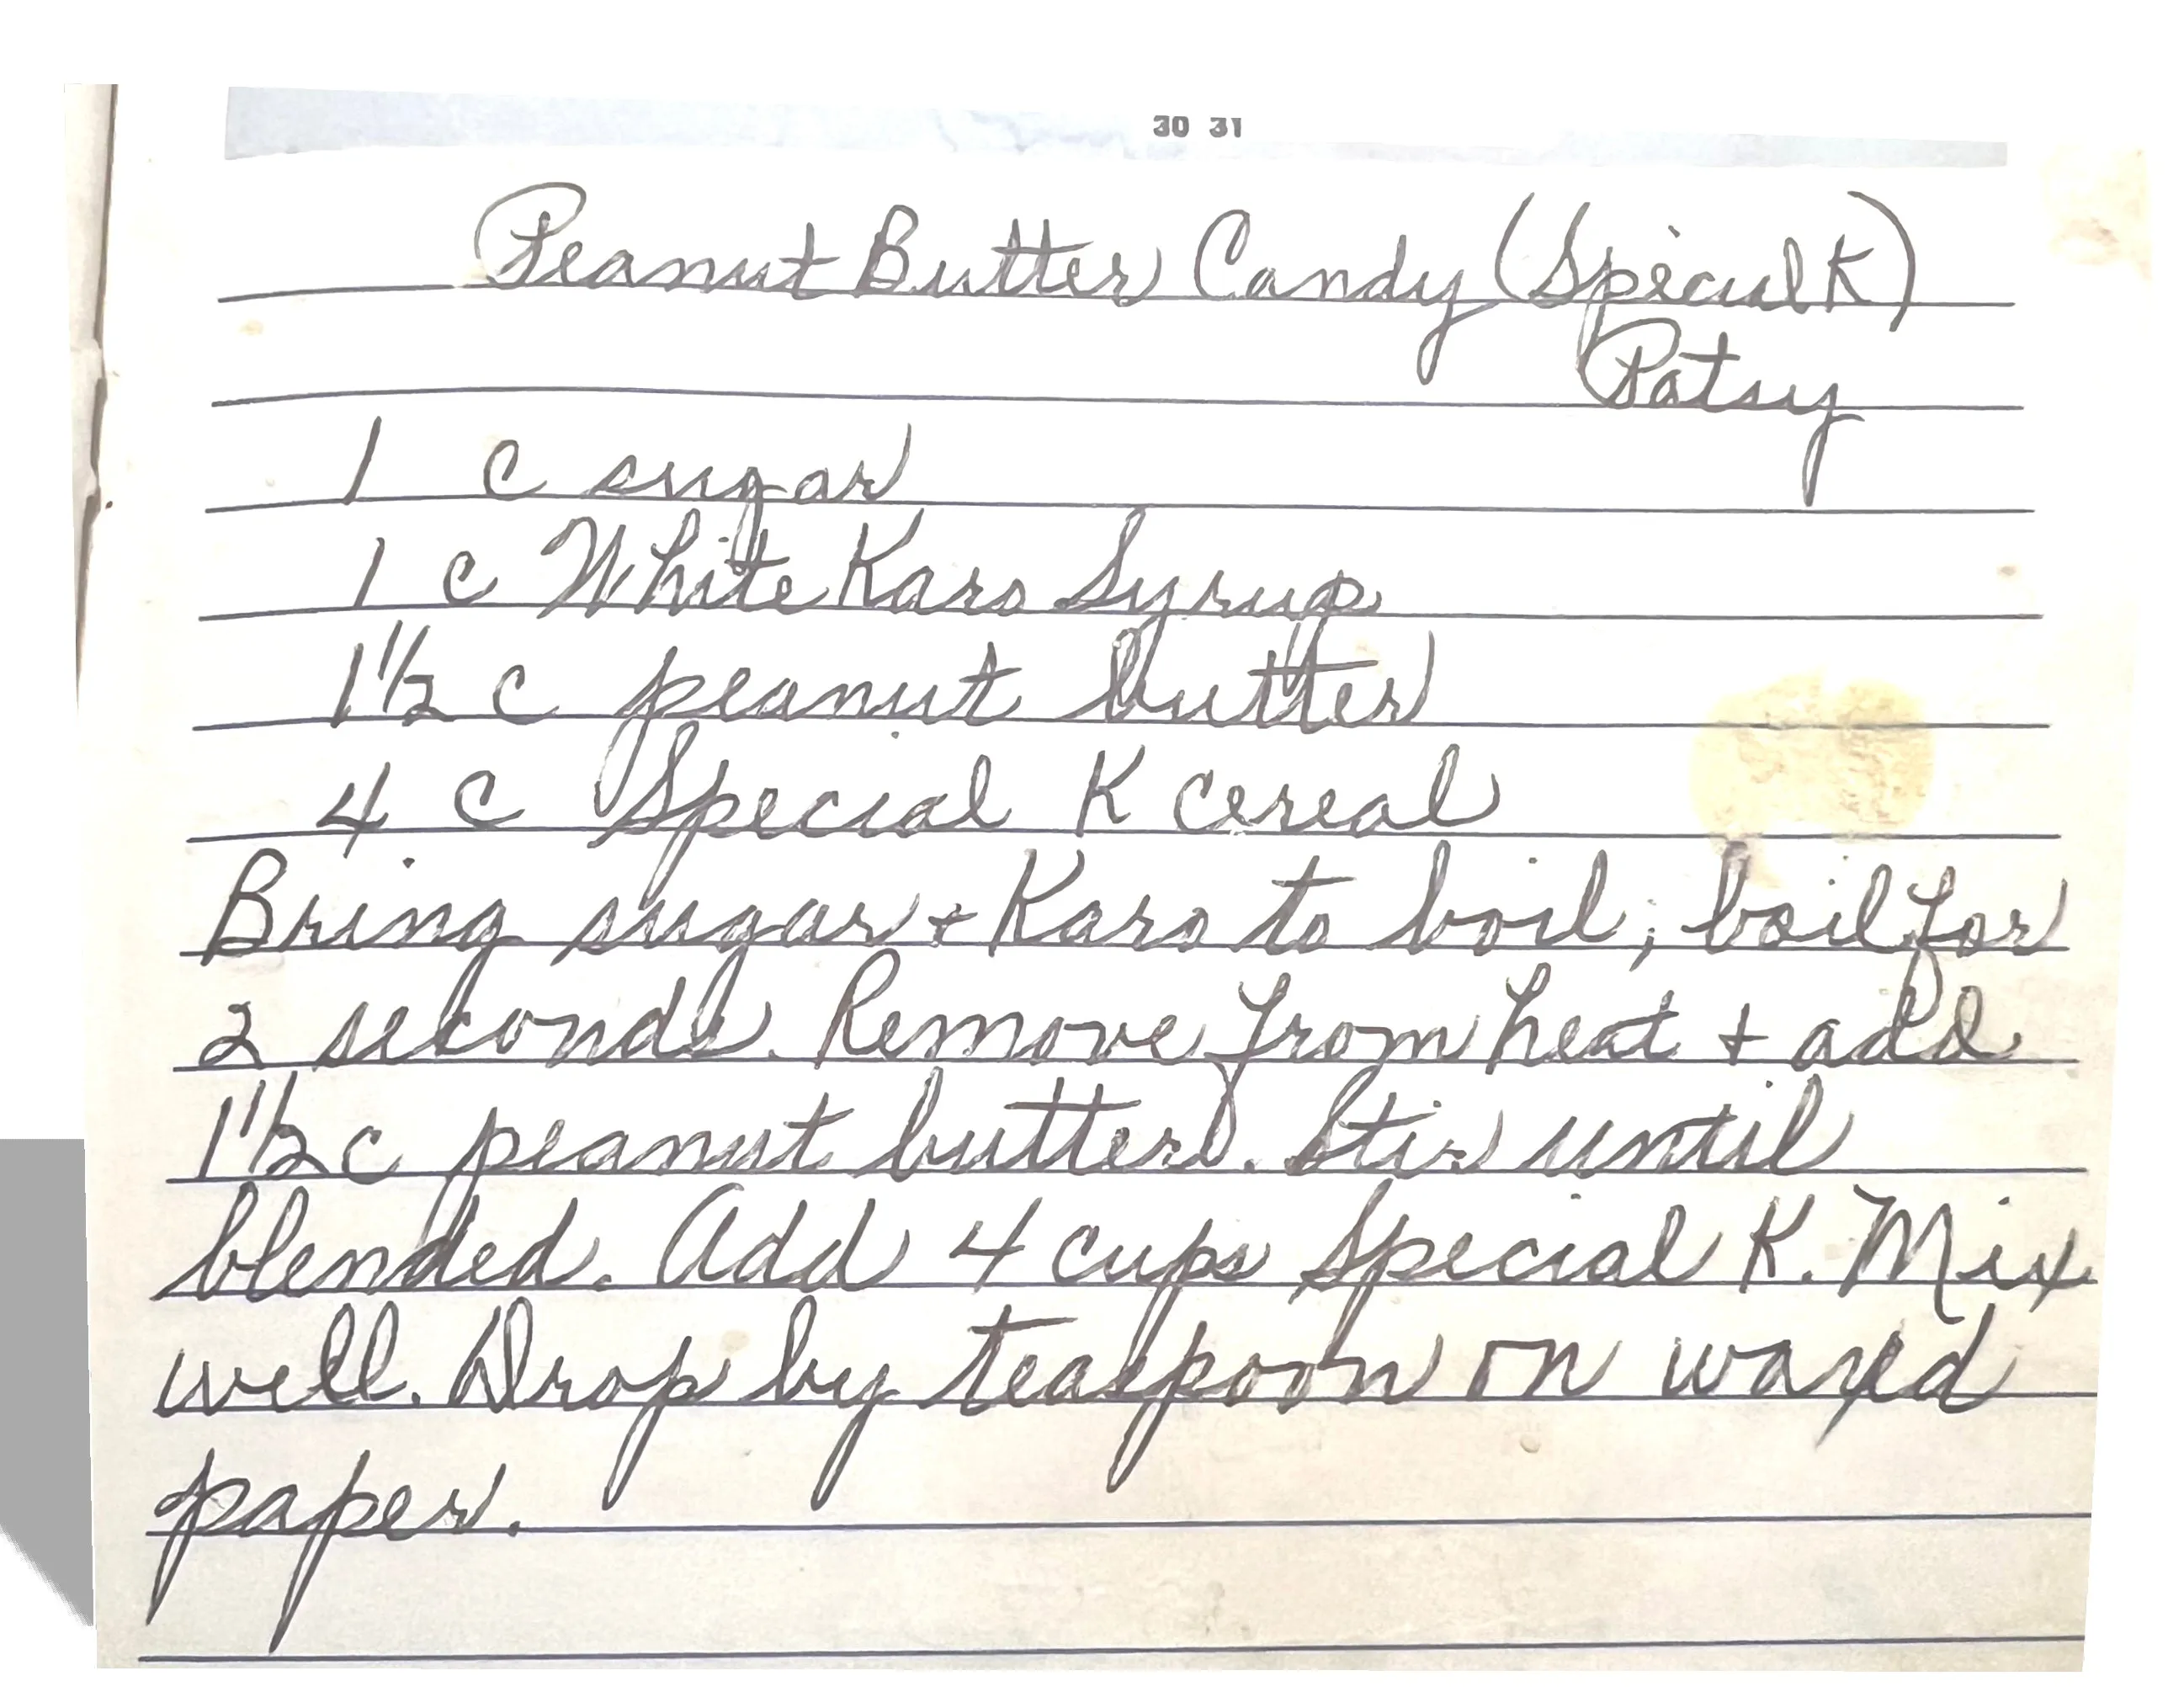 30 31
Peanut Butter Candy (Special K)
Patsy
1 c sugar
1 c White Karo Syrup
1 1/2 c peanut butter
4 c Special K cereal
Bring sugar + Karo to boil; boil for
2 seconds. Remove from heat + add
1 1/2 c peanut butter. Stir until
blended. Add 4 cups Special K. Mix
well. Drop by teaspoon on waxed
paper.